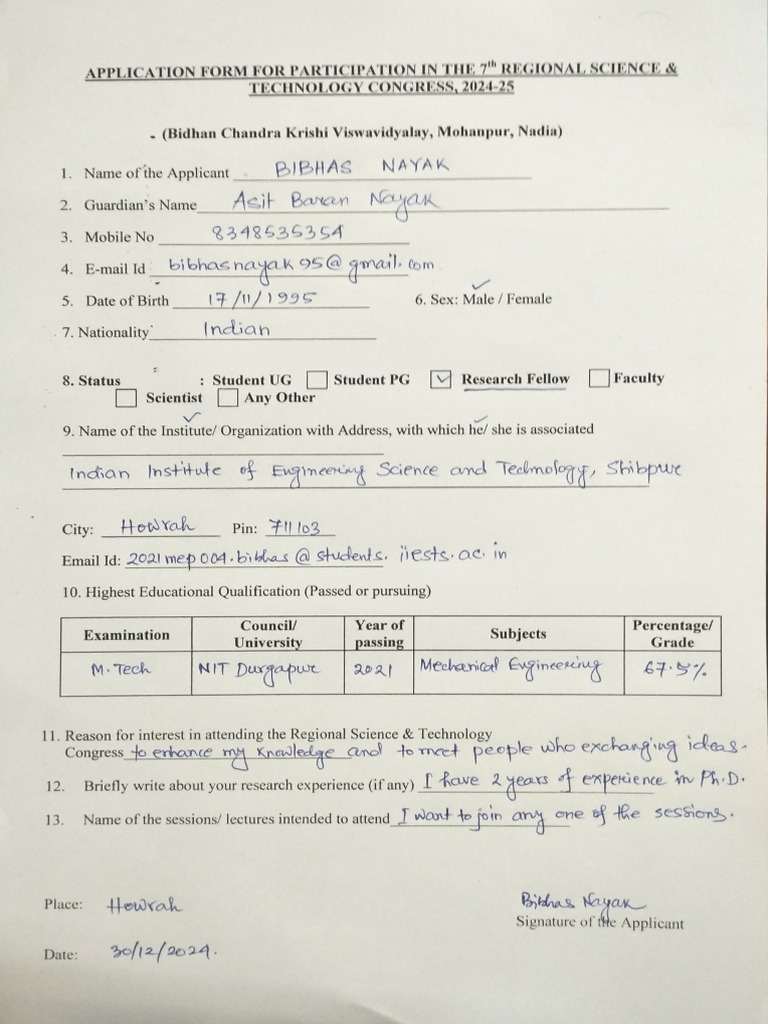 APPLICATION FORM FOR PARTICIPATION IN THE 7th REGIONAL SCIENCE &
TECHNOLOGY CONGRESS, 2024-25
- (Bidhan Chandra Krishi Viswavidyalay, Mohanpur, Nadia)
1. Name of the Applicant BIBHAS NAYAK
2. Guardian's Name Asit Baran Nayak
3. Mobile No 8348535354
4. E-mail Id bibhasnayak95@gmail.com
5. Date of Birth 17/11/1995 6. Sex: Male / Female
7. Nationality Indian
8. Status : Student UG Student PG Research Fellow Faculty
Scientist Any Other
9. Name of the Institute/ Organization with Address, with which he/ she is associated
Indian Institute of Engineering Science and Technology, Shibpur
City: Howrah Pin: 711103
Email Id: 2021mep004.bibhas@students.iiests.ac.in
10. Highest Educational Qualification (Passed or pursuing)
Examination Council/ University Year of passing Subjects Percentage/ Grade
M.Tech NIT Durgapur 2021 Mechanical Engineering 67.5%
11. Reason for interest in attending the Regional Science & Technology
Congress to enhance my knowledge and to meet people who exchanging ideas.
12. Briefly write about your research experience (if any) I have 2 years of experience in Ph.D.
13. Name of the sessions/ lectures intended to attend I want to join any one of the sessions.
Place: Howrah Bibhas Nayak
Signature of the Applicant
Date: 30/12/2024.